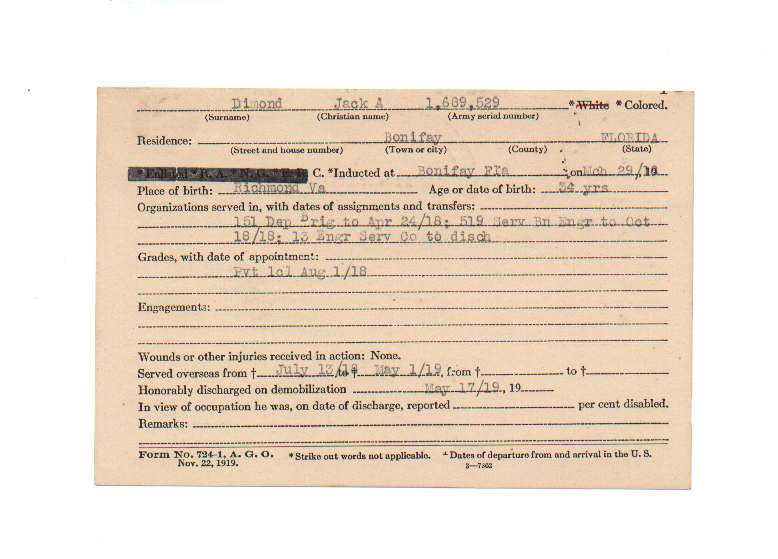 Dimond Jack A 1,689,529 *White *Colored.
(Surname) (Christian name) (Army serial number)
Residence: Bonifay FLORIDA
(Street and house number) (Town or city) (County) (State)
*Enlisted *R. A. *N. G. *E. R. C. *Inducted at Bonifay Fla on Mch 29/18
Place of birth: Richmond Va Age or date of birth: 34 yrs
Organizations served in, with dates of assignments and transfers:
151 Dep Brig to Apr 24/18; 519 Serv Bn Engr to Oct
18/18; 13 Engr Serv Co to disch
Grades, with date of appointment:
Pvt 1cl Aug 1/18
Engagements:
Wounds or other injuries received in action: None.
Served overseas from † July 13/18 to † May 1/19, from † to †
Honorably discharged on demobilization May 17/19, 19
In view of occupation he was, on date of discharge, reported per cent disabled.
Remarks:
Form No. 724-1, A. G. O. *Strike out words not applicable. †Dates of departure from and arrival in the U. S.
Nov. 22, 1919. 3—7302